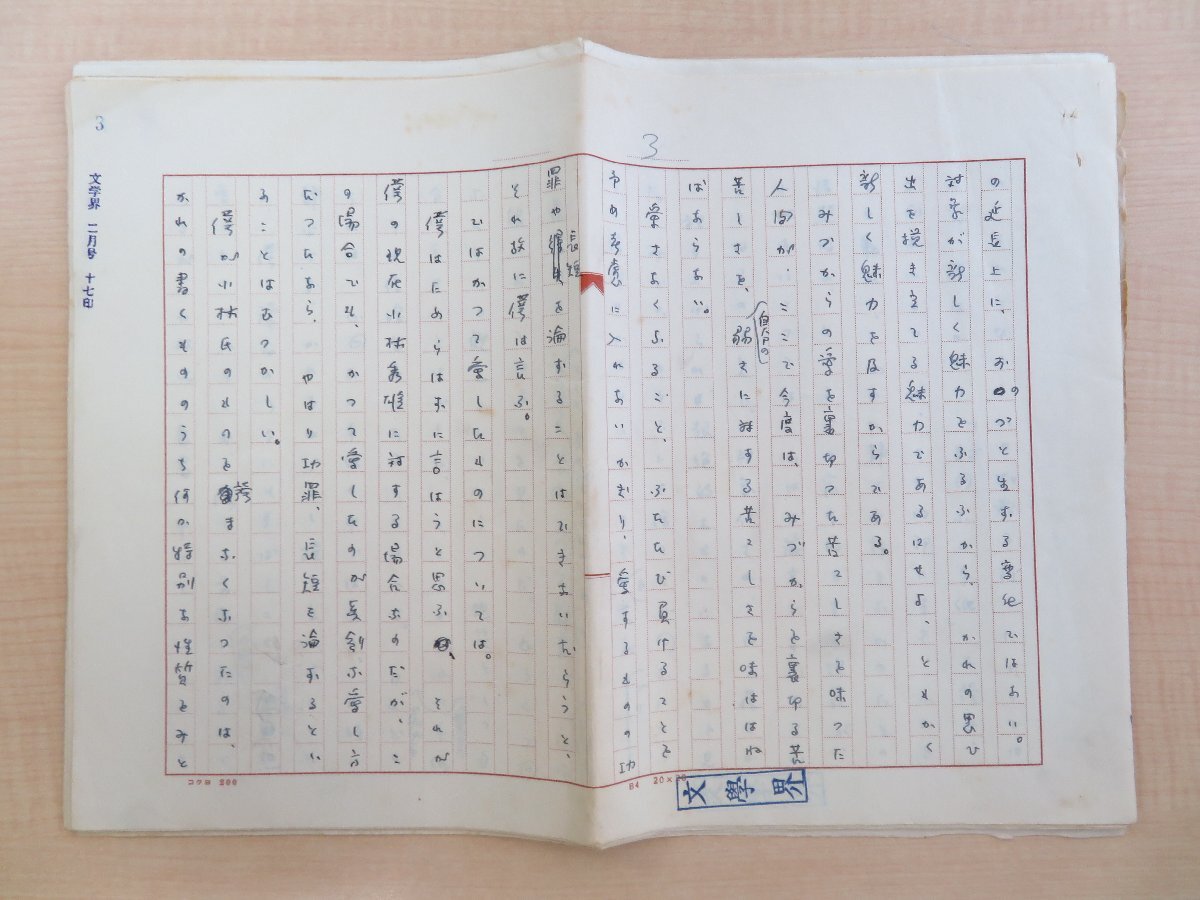 3
の延長上に、おのづと生ずる変化ではない。
対象が新しく魅力をふるふから、かれの思ひ
出を描き立てる魅力であるにせよ、ともかく
新しく魅力を及すからである。
みづからの愛を裏切つた苦〻しさを味つた
人間が、ここで今度は、みづからを裏切る苦
苦しさを、自分の弱さに対する苦〻しさを味ははね
ばならない。
愛さなくなること、ふたたび負けることを
予め考慮に入れないかぎり、愛するものの功
罪や長短を論ずることはできないだらうと、
それ故に僕は言ふ。
ではかつて愛したものについては。
僕はためらはずに言はうと思ふ、それが
僕の現在小林秀雄に対する場合なのだが、こ
の場合でも、かつて愛したのが真剣な愛し方
だつたなら、やはり功罪、長短を論ずるとい
ふことはむつかしい。
僕が小林氏のものを読まなくなつたのは、
かれの書くもののうち何か特別な性質をみと
コクヨ 200
B4 20×20
文學界
3
文学界 二月号 十七日